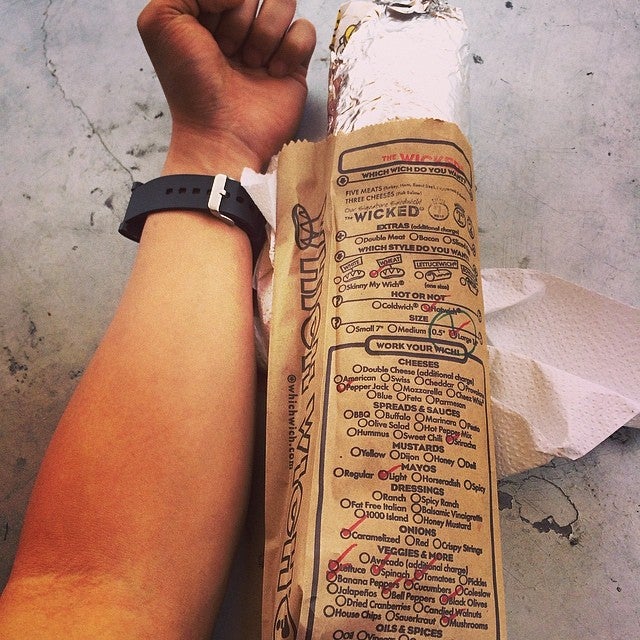 THE WICKED
WHICH WICH DO YOU WANT?
FIVE MEATS (Turkey, Ham, Roast Beef,
THREE CHEESES (Pick Below)
Our Signature Sandwich!
THE WICKED
EXTRAS (additional charge)
Double Meat Bacon
WHICH STYLE DO YOU WANT
WHITE WHEAT LETTUCEWICH
Skinny My Wich® (one size)
HOT OR NOT
Coldwich® Hotwich®
SIZE
Small 7" Medium 10.5" Large
WORK YOUR WICH!
CHEESES
Double Cheese (additional charge)
American Swiss Cheddar Provolone
Pepper Jack Mozzarella Cheez Whiz
Blue Feta Parmesan
SPREADS & SAUCES
BBQ Buffalo Marinara Pesto
Olive Salad Hot Pepper Mix
Hummus Sweet Chili Sriracha
MUSTARDS
Yellow Dijon Honey Deli
MAYOS
Regular Light Horseradish Spicy
DRESSINGS
Ranch Spicy Ranch
Fat Free Italian Balsamic Vinaigrette
1000 Island Honey Mustard
ONIONS
Caramelized Red Crispy Strings
VEGGIES & MORE
Avocado (additional charge)
Lettuce Spinach Tomatoes Pickles
Banana Peppers Cucumbers Coleslaw
Jalapeños Bell Peppers Black Olives
Dried Cranberries Candied Walnuts
House Chips Sauerkraut Mushrooms
OILS & SPICES
Oil
WHICH WICH
@whichwich.com